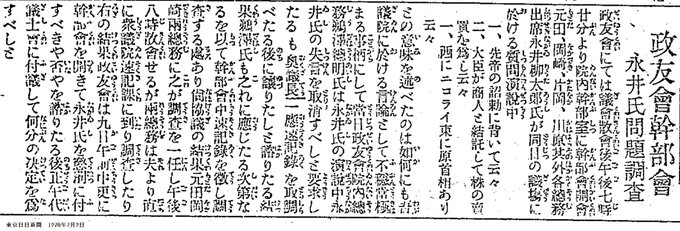 政友會幹部會
永井氏問題調査
政友會にては議會散會後午後七時
廿分より院内幹部室に幹部會開會
元田、岡崎、片岡、川原其外各總務
出席永井柳太郎氏が同日の議場に
於ける質問演說中
一、先帝の詔勅に背いて云々
二、大臣が商人と結託して株の賣
買を爲し云々
一、西にニコライ東に原首相あり
云々
との意味を述べたのは如何にも言
議院に於ける言論として不穩當極
まる事柄にして當日政友會院内總
務鵜澤總明氏は永井氏の演說中永
井氏の失言を取消すべしと要求し
たるも奧議長は一應速記錄を取調
べたる後に議りたしと諮りたる結
果鵜澤氏も之れに應じたる次第な
るを以て幹部會中速記錄を徵し調
査する處あり協議の結果元田岡
崎兩總務に之が調査を一任し午後
八時散會せるが兩總務は夫より直
に衆議院速記課に到り調査したり
右の結果政友會は九日午前中更に
幹部會を開きて永井氏を懲罰に付
すべきや否やを諮りたる後正午代
議士會に付議して何分の決定を爲
すべしと
東京日日新聞 1920年7月9日